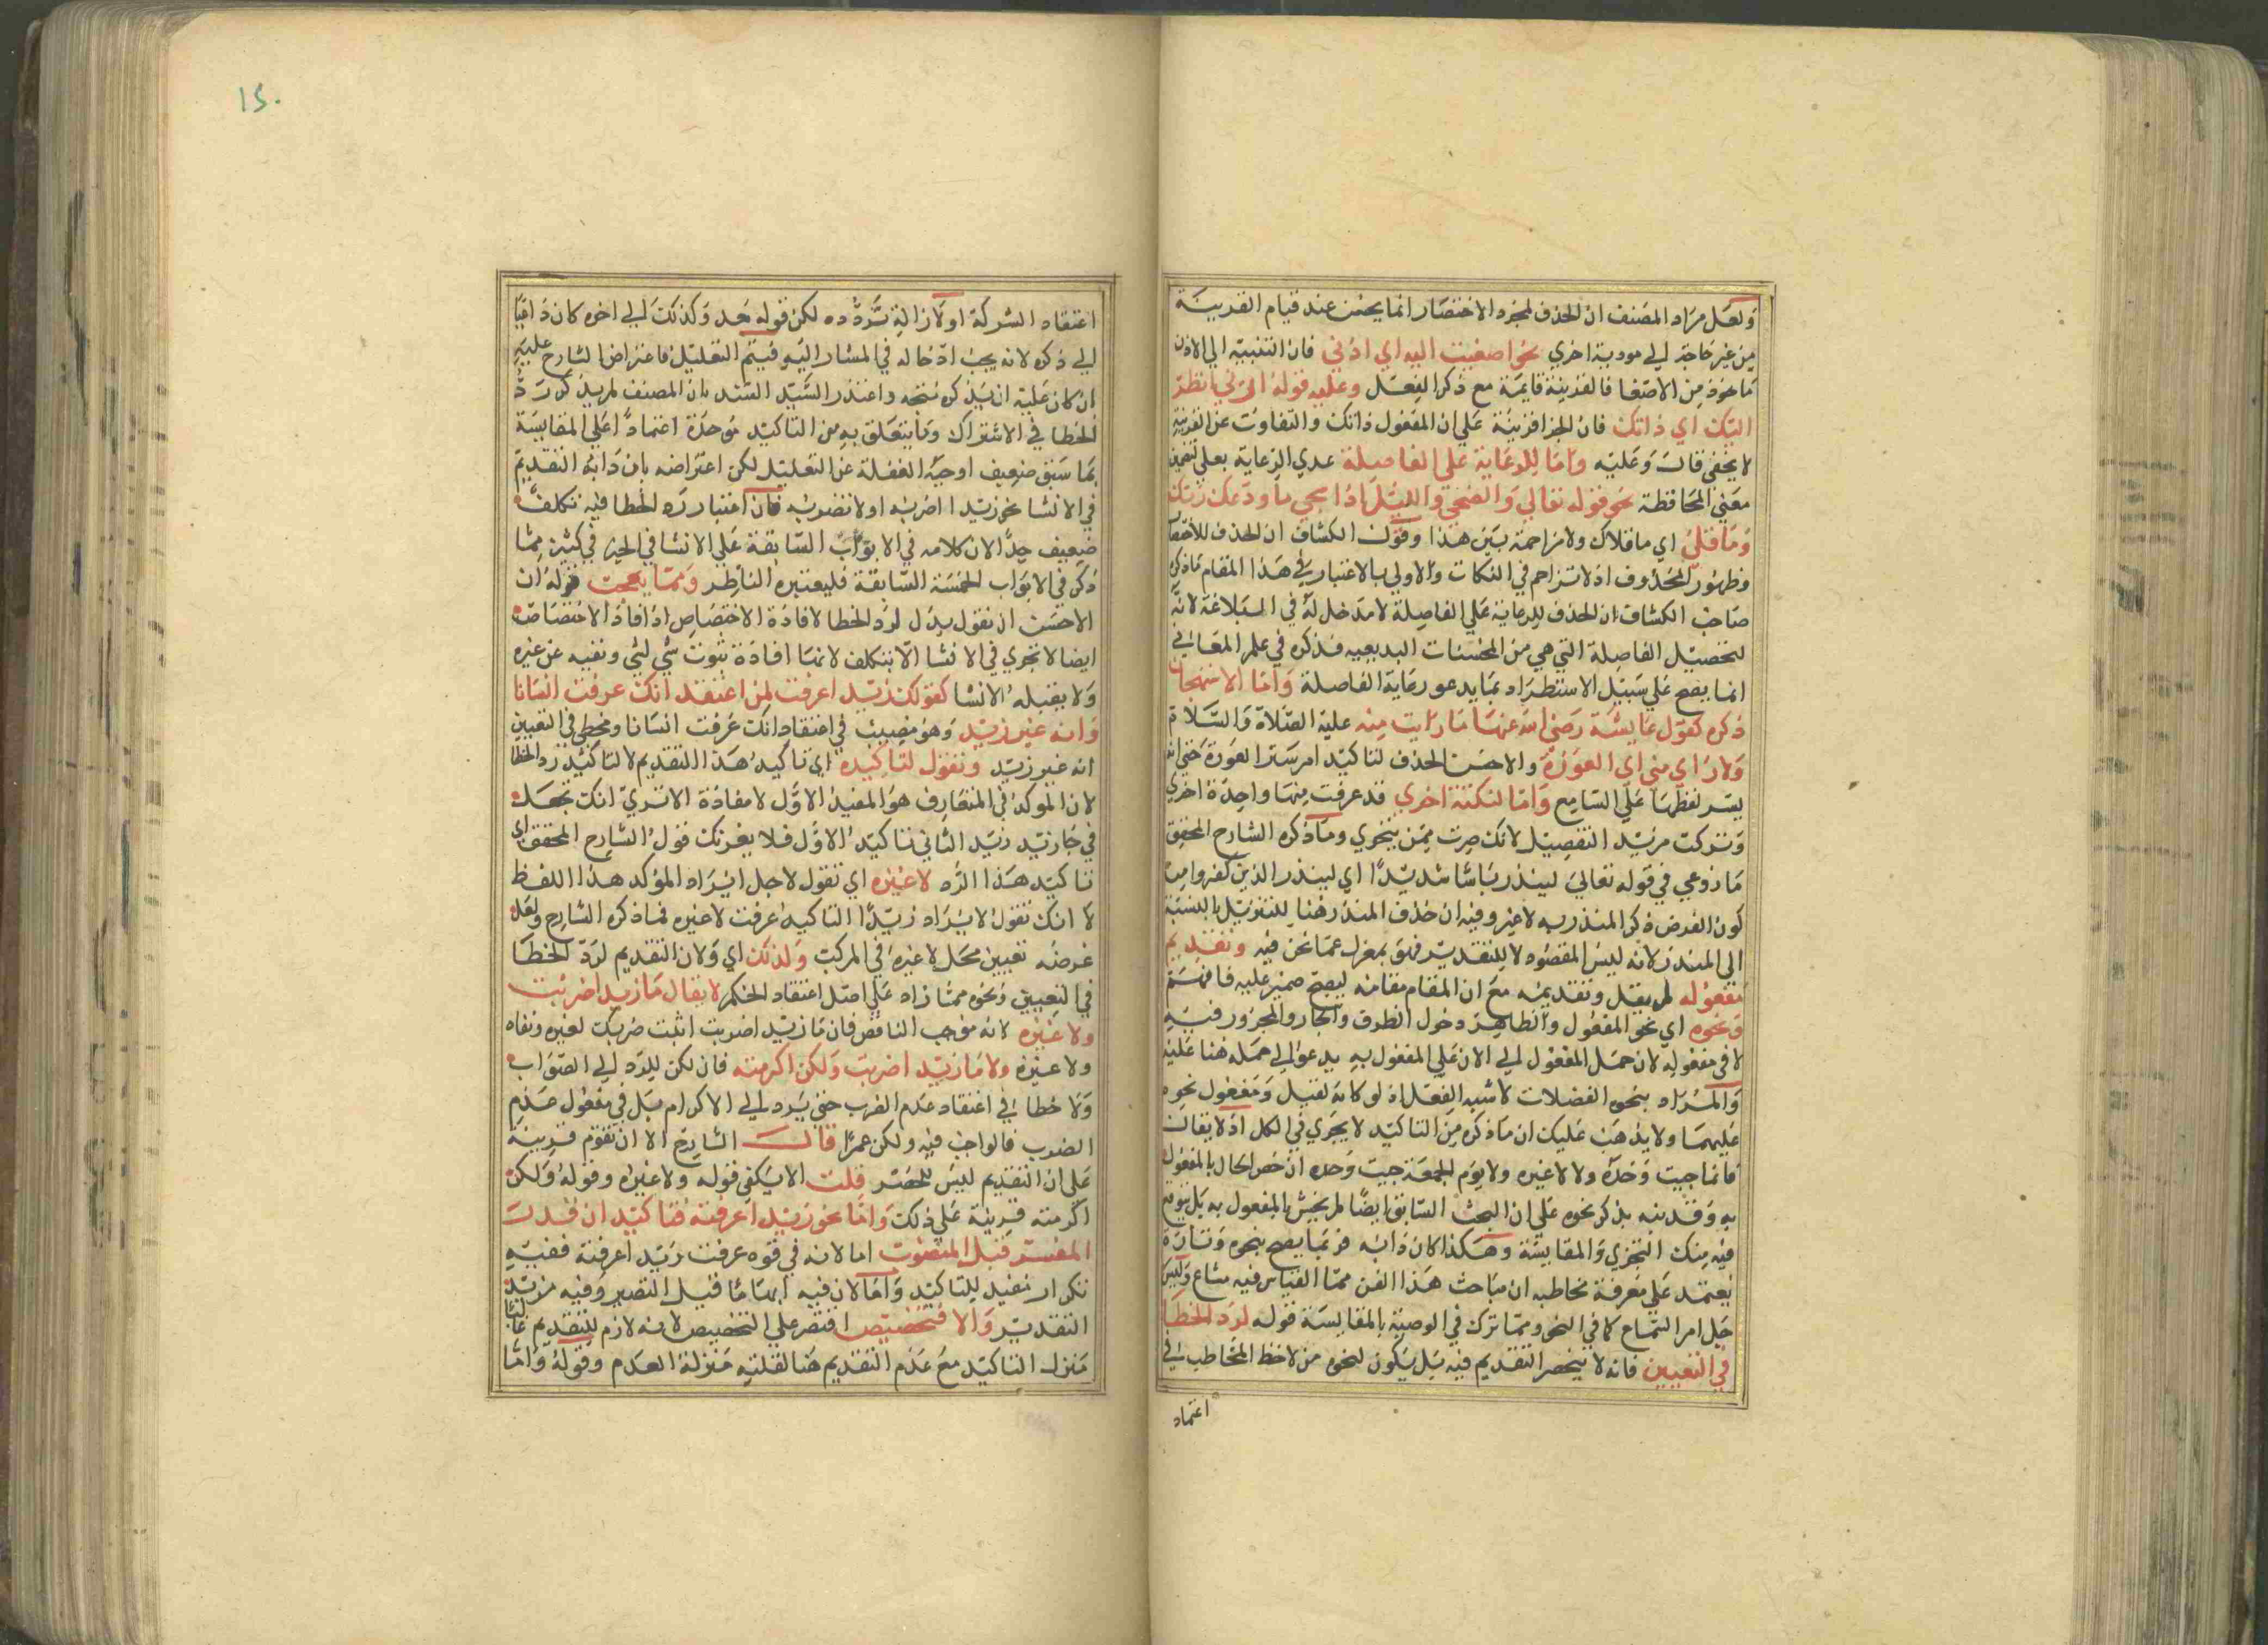 ولعل مراد المصنف ان الحذف لمجرد الاختصار انما يحسن عند قيام القرينة
من غير حاجة الي مودية اخري نحو اصغيت اليه اي اذني فان التنبيه الي الاذن
ماخوذ من الاصغا فالقرينة قايمة مع ذكر الفعل وعليه قوله ارني انظر
اليك اي ذاتك فان الجزا قرينة علي ان المفعول ذاتك والتفاوت عن القرينة
لا يخفي قال وعليه واما للرعاية علي الفاصلة عدي الرعاية بعلي لتضمين
معني المحافظة نحو قوله تعالي والضحي والليل اذا سجي ما ودعك ربك
وما قلي اي ما قلاك ولا مزاحمة بين هذا وقول الكشاف ان الحذف للاختصار
وظهور المحذوف اذ لا تزاحم في النكات والاولي بالاعتبار في هذا المقام ما ذكره
صاحب الكشاف ان الحذف للرعاية علي الفاصلة لا مدخل له في البلاغة لانه
لتحصيل الفاصلة التي هي من المحسنات البديعيه فذكره في علم المعاني
انما يصح علي سبيل الاستطراد بما يدعو رعاية الفاصلة واما لاستهجان
ذكره كقول عايشة رضي الله عنها ما رايت منه عليه الصلاة والسلام
ولا راي مني اي العورة والاحسن الحذف لتاكيد امر ستر العورة حتي انه
يستر لفظها علي السامع واما لنكتة اخري قد عرفت منها واحدة اخري
وتركت مزيد التفصيل لانك صرت ممن يتحري وما ذكره الشارح المحقق
ما روعي في قوله تعالي لينذر باسا شديدا اي لينذر الذين كفروا من
كون الغرض ذكر المنذر به لا غير وفيه ان حذف المنذر هنا للتنزيل بالنسبة
الي المنذر لانه ليس المقصود لا للتقدير فهو بمعزل عما نحن فيه وتقديم
مفعوله لم يقل وتقديمه مع ان المقام مقامه ليصح ضمير عليه فافهم
ونحوه اي نحو المفعول والظاهر دخول الظرف والجار والمجرور فيه
لا في مفعوله لان حمل المفعول الي الان علي المفعول به يدعو الي حمله هنا عليه
والمراد بنحوه الفضلات لا شبه الفعل اذ لو كانه لقيل ومفعول نحوه
عليهما ولا يذهب عليك ان ما ذكره من التاكيد لا يجري في الكل اذ لا يقال
فانما جيت وحده ولا لا غيره ولا يوم الجمعة جيت وحده ان خص الحال بالمفعول
به وقد نبه بذكر نحوه علي ان البحث السابق ايضا لم يختص بالمفعول به بل يتوقع
فيه منك التحري والمقايسة وهكذا كان دابه فربما يصرح بنحوه وتارة
يعتمد علي معرفة مخاطبه ان مباحث هذا الفن مما القياس فيه مشاع وليس
جل امر السماع كما في النحو ومما ترك في الوصية بالمقايسة قوله لرد الخطا
في التعيين فانه لا ينحصر التقديم فيه بل يكون لنحوه من لاحظ المخاطب في
اعتقاد
١٢٠
اعتقاد الشركة او لازالة تردده لكن قوله بعد وكذلك الي اخره كان داعيا
الي ذكره لانه يجب ادخاله في المشار اليه فيتم التعليل فاعتراض الشارح عليه
ان كان عليه ان يذكره متجه واعتذر السيد السند بان المصنف لم يذكر رد
الخطا في الاشتراك وما يتعلق به من التاكيد بوحده اعتمادا علي المقايسة
بما سبق ضعيف اوجبه الغفلة عن التعليل لكن اعتراضه بان دابه التقديم
في الانشا نحو زيدا اضرب او لا تضرب فان اعتبار رد الخطا فيه تكلف
ضعيف جدا لان كلامه في الابواب السابقة علي الانشا في الخبر في كثير مما
ذكر في الابواب الخمسة السابقة فليعتبره الناظر ومما يعجب قوله ان
الاحسن ان نقول بدل لرد الخطا لافادة الاختصاص اذ افاد الاختصاص
ايضا لا تجري في الانشا الا بتكلف لانها افادة ثبوت شي لشي ونفيه عن غيره
ولا يقبله الانشا كقولك زيدا عرفت لمن اعتقد انك عرفت انسانا
وانه غير زيد وهو مصيب في اعتقاد انك عرفت انسانا ومخطي في التعيين
انه غير زيد ونقول لتاكيده اي تاكيد هذا التقديم لا لتاكيد رد الخطا
لان الموكد في المتعارف هو المفيد الاول لا مفاده الا تري انك تجعل
في جا زيد زيد الثاني تاكيد الاول فلا يغرنك قول الشارح المحقق اي
تاكيد هذا الرد لا غيره اي تقول لاجل ايراد المؤكد هذا اللفظ
لا انك تقول لايراد زيدا التاكيد عرفت لا غيره فما ذكره الشارح ولعل
غرضه تعيين محل لا غيره في المركب ولذلك اي ولان التقديم لرد الخطا
في التعيين ونحوه مما زاد علي اصل اعتقاد الحكم لا يقال ما زيدا ضربت
ولا غيره لانه موجب التناقض فان ما زيدا ضربت اثبت ضربك لغيره ونفاه
ولا غيره ولا ما زيدا ضربت ولكن اكرمته فان لكن للرد الي الصواب
ولا خطا في اعتقاد عدم الضرب حتي يرد الي الاكرام بل في مفعول عدم
الضرب فالواجب فيه ولكن عمرا قال الشارح الا ان تقوم قرينة
علي ان التقديم ليس للحصر قلت الا يكفي قوله ولا غيره وقوله ولكن
اكرمته قرينة علي ذلك واما نحو زيدا عرفته فتاكيد ان قدر
المفسر قبل المنصوب اما لانه في قوه عرفت زيدا عرفته ففيه
تكرار مفيد للتاكيد واما لان فيه ابهاما قبل التفسير وفيه مزيد
التقدير والا فتخصيص اقتصر علي التخصيص لانه لازم للتقديم غالبا
منزل التاكيد مع عدم التقديم هنا لقلته منزلة العدم وقوله واما